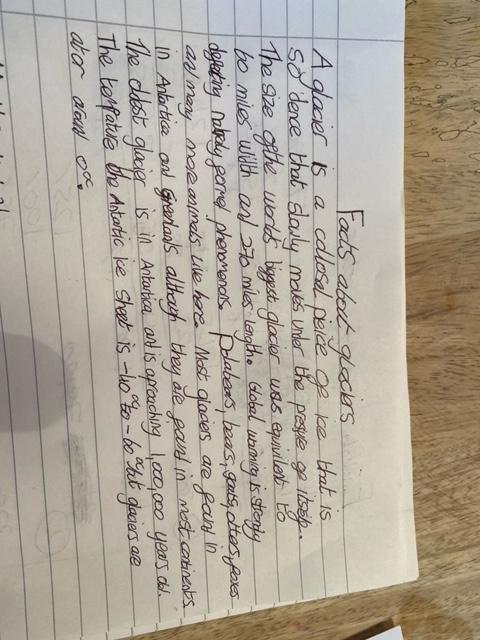 Facts about glaciers
A glacier is a collosal peice of ice that is
so dense that slowly moves under the presure of itself.
The size of the worlds biggest glacier was equivilent to
60 miles width and 270 miles length. Global warming is strongly
naturaly formed phenomenons. Polabears, bears, goats, otters, foxes
and many more animals live here. Most glaciers are found in
in Antartica and Greenland although they are found in most continents.
The oldest glacier is in Antartica and is aproaching 1,000,000 years old.
The tempature the Antartic ice sheet is -40°c to -60°c but glaciers are
at or around 0°c.